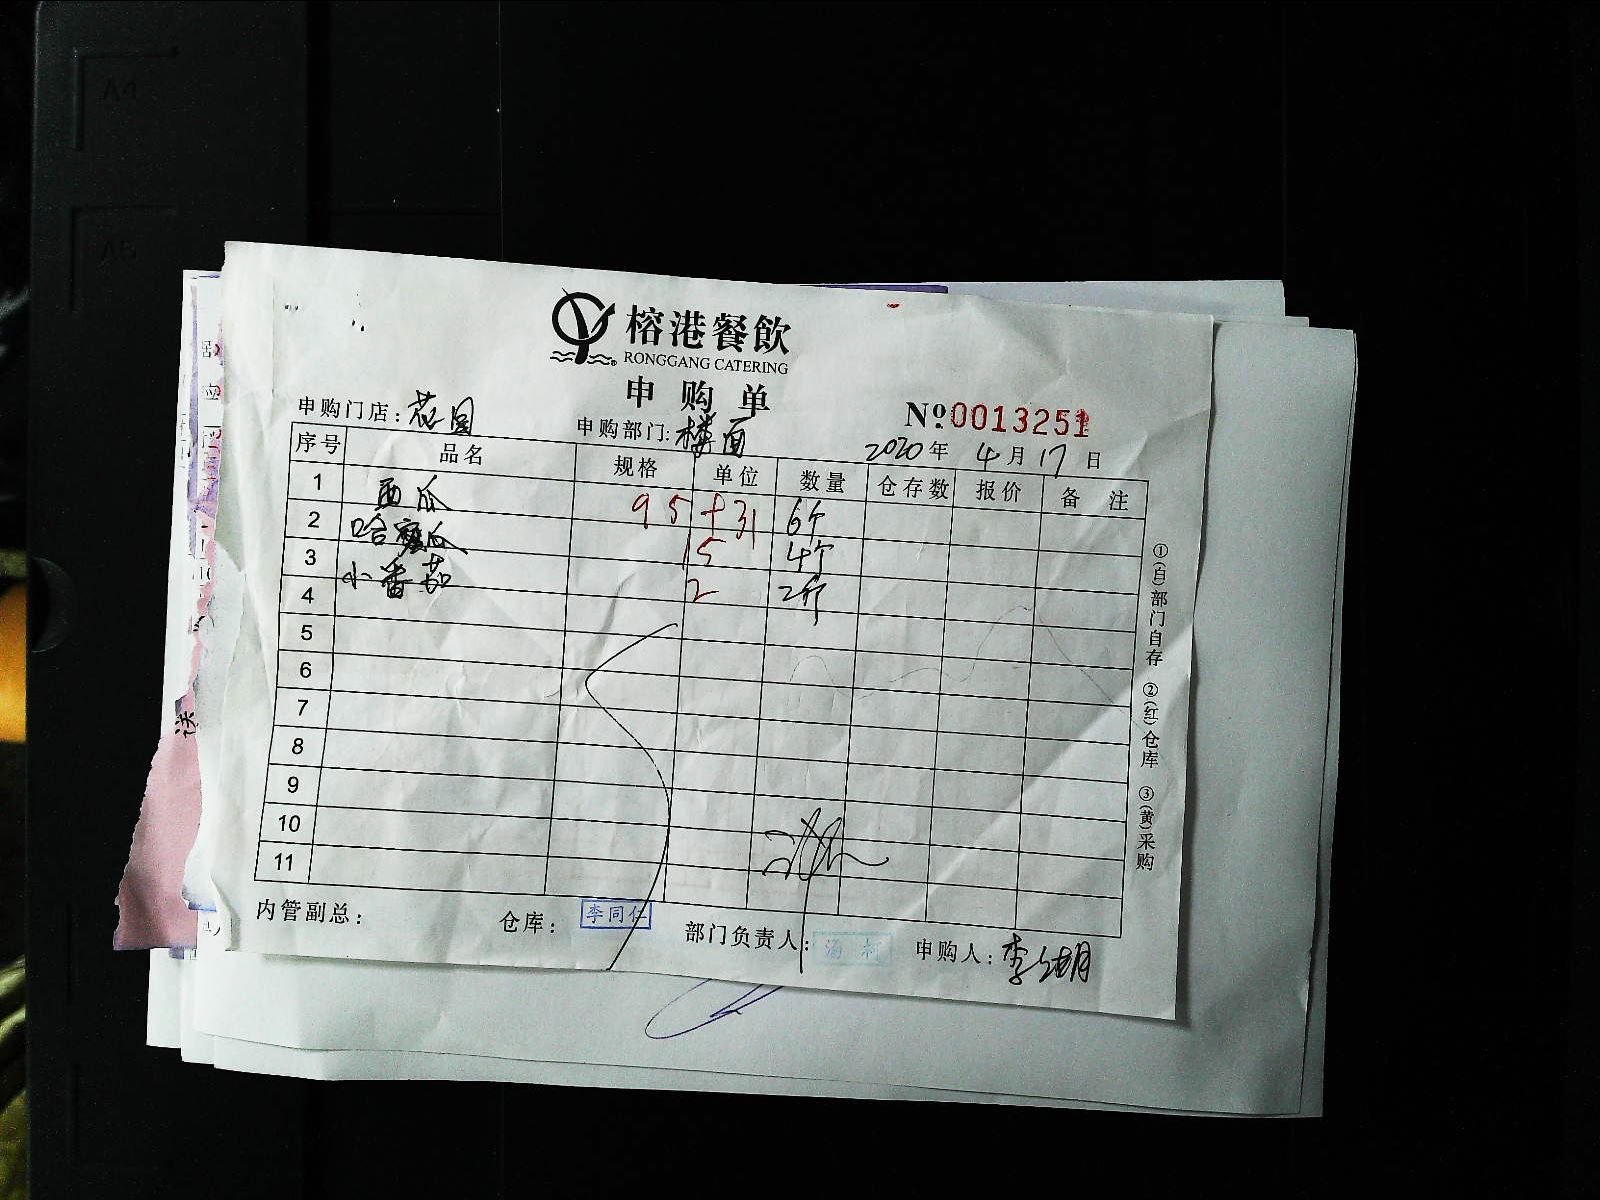 A4
A5
榕港餐飲
RONGGANG CATERING
申购单
申购门店:花园
申购部门:楼面
№0013251
2020年4月17日
序号 品名 规格 单位 数量 仓存数 报价 备注
1 西瓜 95+31 6个
2 哈密瓜 15 4个
3 小番茄 2 2斤
4
5
6
7
8
9
10
11
①(白)部门自存 ②(红)仓库 ③(黄)采购
内管副总: 仓库: 李同仁 部门负责人: 汤柯 申购人:李